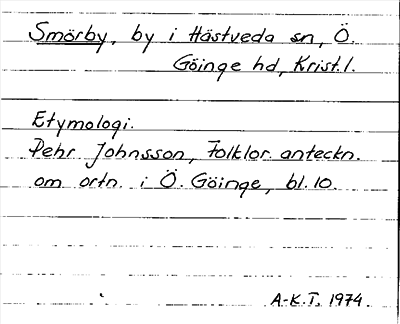 Smörby, by i Hästveda sn, Ö.
Göinge hd, Krist. l.
Etymologi.
Pehr Johnsson, Folklor. anteckn.
om ortn. i Ö. Göinge, bl. 10.
A-K.T. 1974.